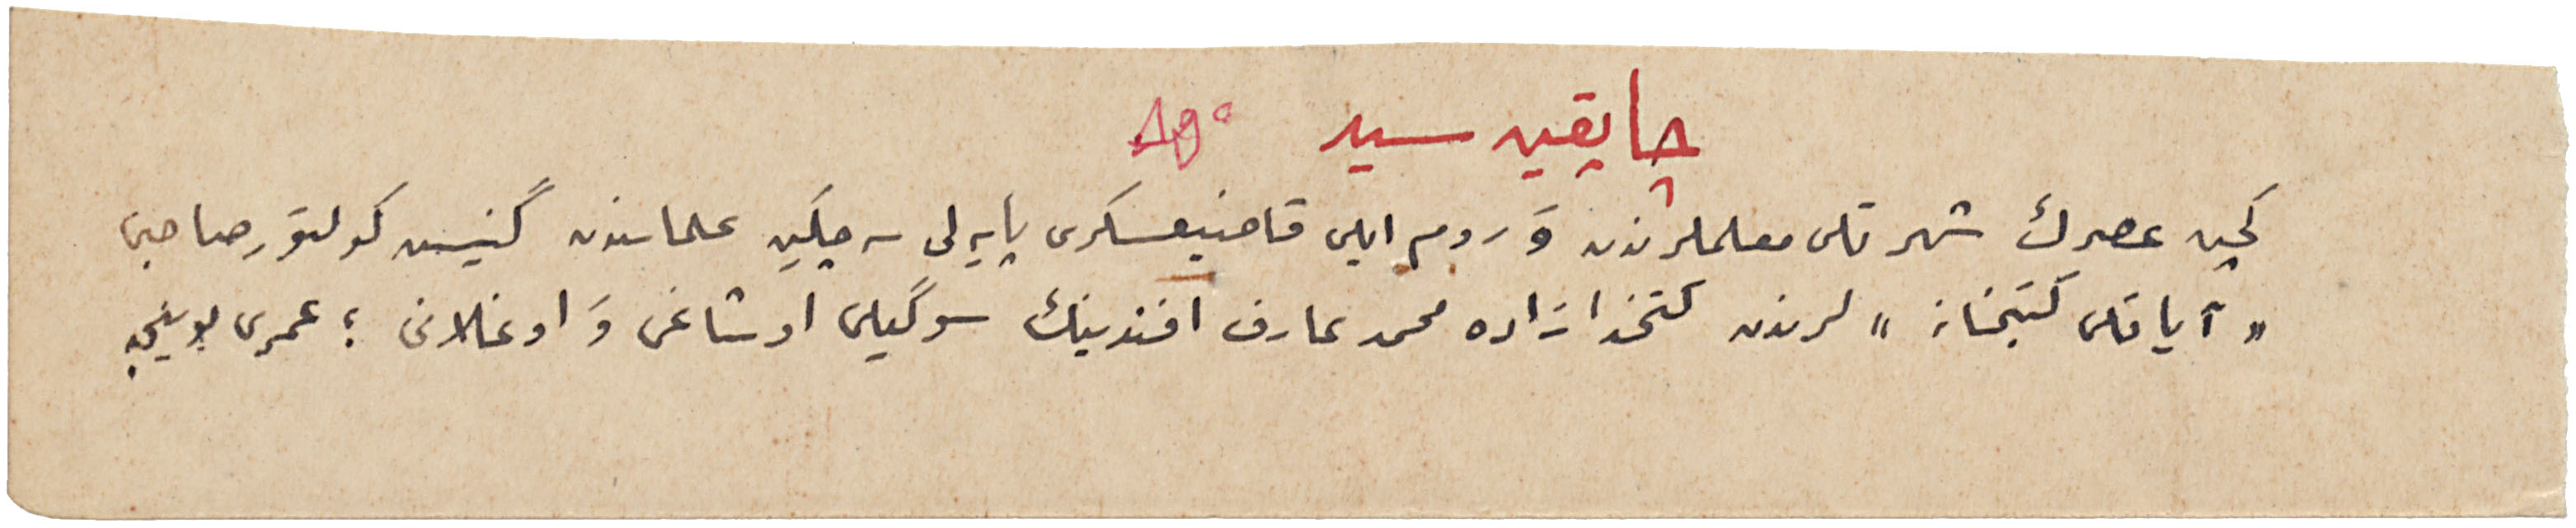 چاپقین سید
گچن عصرڭ شهرتلی معلملرندن وَ روم ایلی قاضیعسکری پایه‌لی سچکین علماسندن گنیش کولتور صاحبی
« آیاقلی کتبخانه » لرندن کتخدا زاده محمد عارف افندینڭ سوگیلی اوشاغی وَ اوغلانی ؛ عمری بوینجه